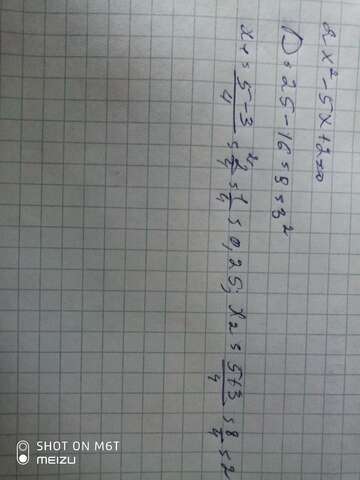 2x² - 5x + 2 = 0
D = 25 - 16 = 9 = 3²
x₁ = (5-3)/4 = 2/4 = 1/4 = 0,25; x₂ = (5+3)/4 = 8/4 = 2
SHOT ON M6T
MEIZU